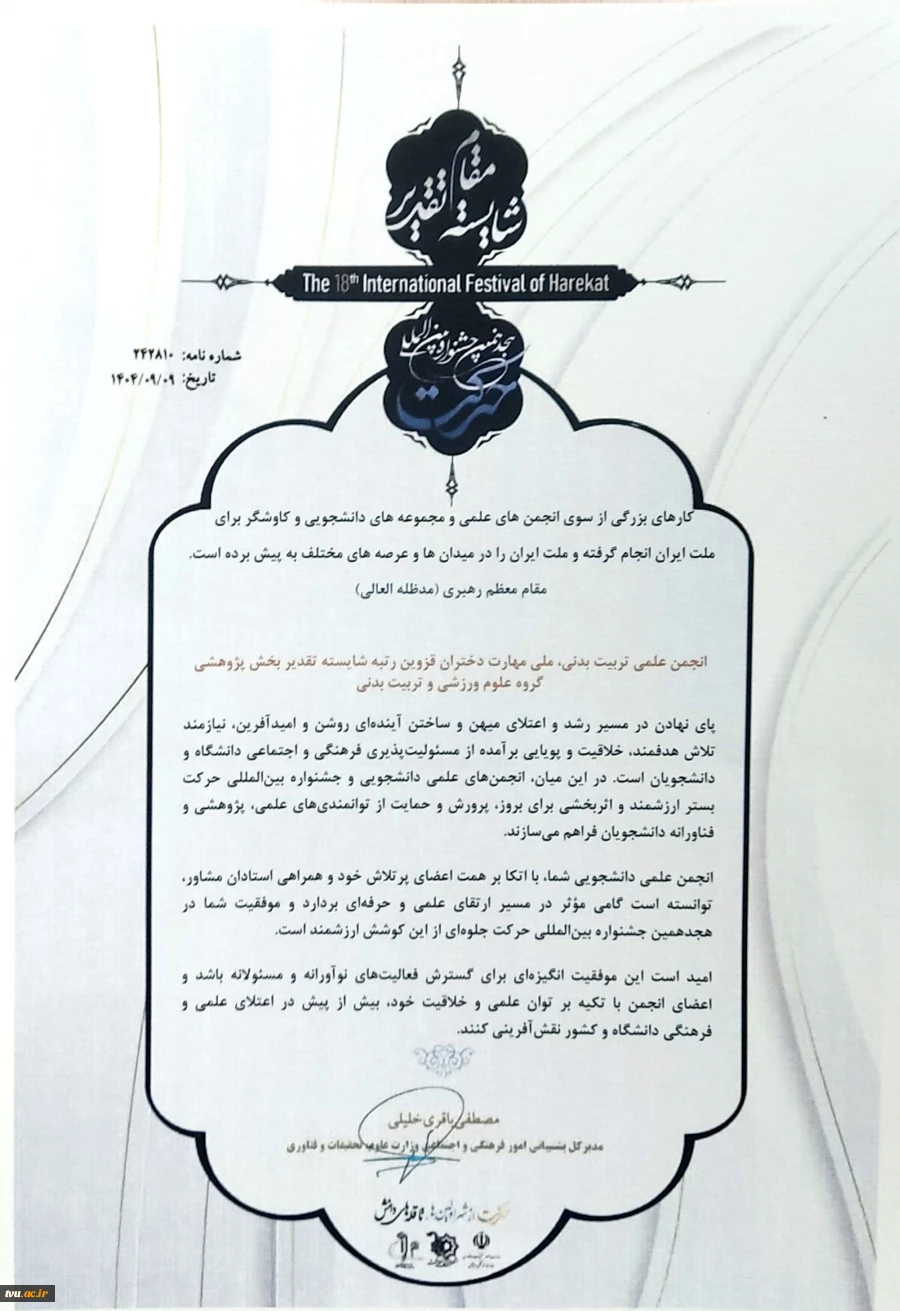 شایسته
مقام
تقدیر
The 18th International Festival of Harekat
هجدهمین جشنواره بین‌المللی
حرکت
شماره نامه: ۲۴۲۸۱۰
تاریخ: ۱۴۰۴/۰۹/۰۹
کارهای بزرگی از سوی انجمن های علمی و مجموعه های دانشجویی و کاوشگر برای
ملت ایران انجام گرفته و ملت ایران را در میدان ها و عرصه های مختلف به پیش برده است.
مقام معظم رهبری (مدظله العالی)
انجمن علمی تربیت بدنی، ملی مهارت دختران قزوین رتبه شایسته تقدیر بخش پژوهشی
گروه علوم ورزشی و تربیت بدنی
پای نهادن در مسیر رشد و اعتلای میهن و ساختن آینده‌ای روشن و امیدآفرین، نیازمند
تلاش هدفمند، خلاقیت و پویایی برآمده از مسئولیت‌پذیری فرهنگی و اجتماعی دانشگاه و
دانشجویان است. در این میان، انجمن‌های علمی دانشجویی و جشنواره بین‌المللی حرکت
بستر ارزشمند و اثربخشی برای بروز، پرورش و حمایت از توانمندی‌های علمی، پژوهشی و
فناورانه دانشجویان فراهم می‌سازند.
انجمن علمی دانشجویی شما، با اتکا بر همت اعضای پرتلاش خود و همراهی استادان مشاور،
توانسته است گامی مؤثر در مسیر ارتقای علمی و حرفه‌ای بردارد و موفقیت شما در
هجدهمین جشنواره بین‌المللی حرکت جلوه‌ای از این کوشش ارزشمند است.
امید است این موفقیت انگیزه‌ای برای گسترش فعالیت‌های نوآورانه و مسئولانه باشد و
اعضای انجمن با تکیه بر توان علمی و خلاقیت خود، بیش از پیش در اعتلای علمی و
فرهنگی دانشگاه و کشور نقش‌آفرینی کنند.
مصطفی باقری خلیلی
مدیر کل پشتیبانی امور فرهنگی و اجتماعی وزارت علوم، تحقیقات و فناوری
حرکت از شهر اولین‌ها تا قله‌های دانش
tvu.ac.ir